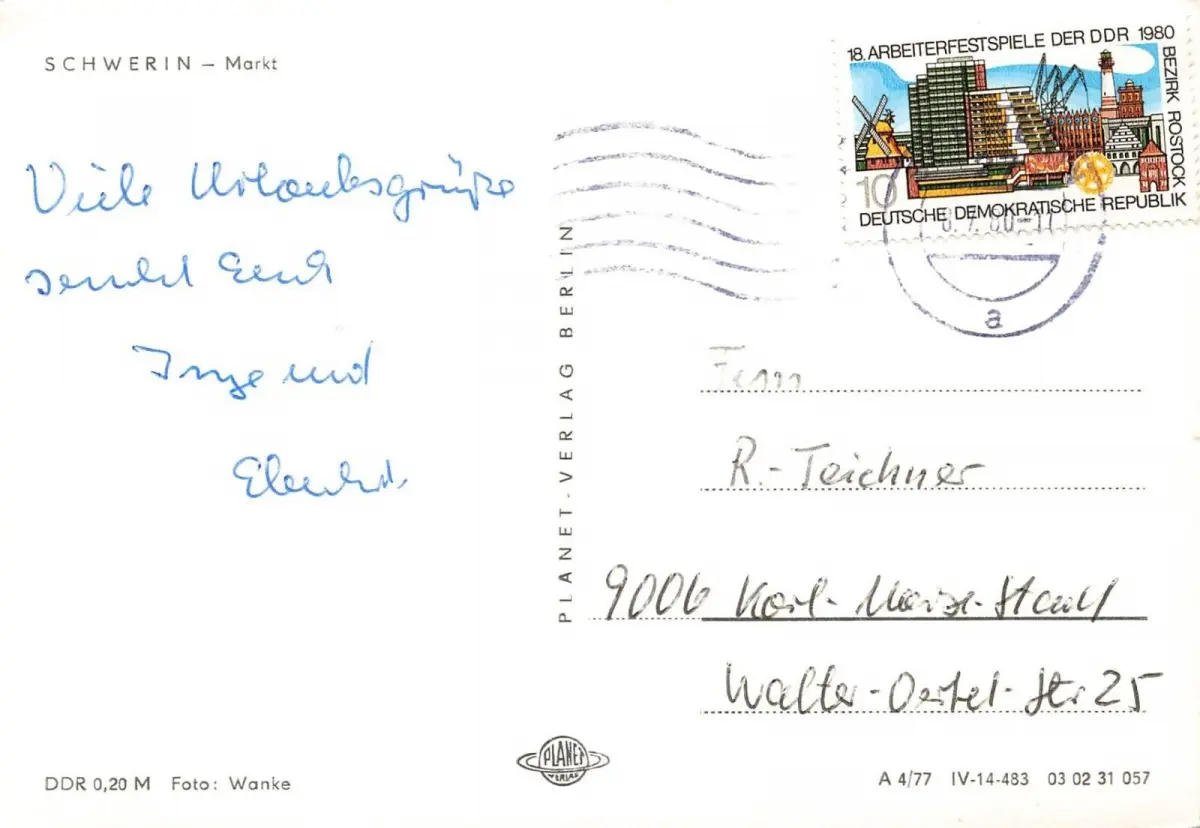 SCHWERIN – Markt
Viele Urlaubsgrüße
sendet Euch
Inge und
18. ARBEITERFESTSPIELE DER DDR 1980
BEZIRK ROSTOCK
10
DEUTSCHE DEMOKRATISCHE REPUBLIK
80-17
a
PLANET-VERLAG BERLIN
R.-Teichner
9006 Karl-Marx-Stadt
Walter-Oertel-Str. 25
PLANET
VERLAG
DDR 0,20 M Foto: Wanke
A 4/77 IV-14-483 03 02 31 057